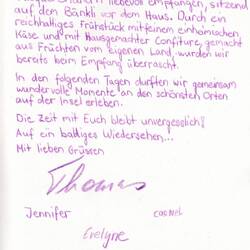 liebevoll empfangen, sitzend
auf dem Bänkli vor dem Haus. Durch ein
reichhaltiges Frühstück mit feinem einheimischen
Käse und mit hausgemachter Confiture, gemacht
aus Früchten vom eigenen Land, wurden wir
bereits beim Empfang überrascht.
In den folgenden Tagen durften wir gemeinsam
wundervolle Momente an den schönsten Orten
auf der Insel erleben.
Die Zeit mit Euch bleibt unvergesslich!
Auf ein baldiges Wiedersehen...
Mit lieben Grüssen
Thomas
Jennifer
Evelyne